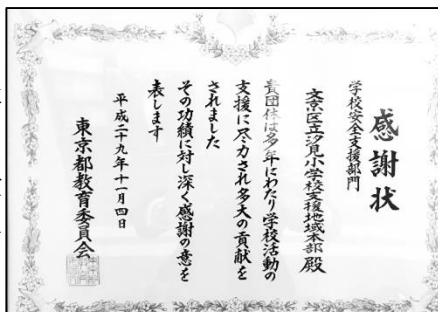 感謝状
学校安全支援部門
文京区立汐見小学校支援地域本部 殿
貴団体は多年にわたり学校活動の
支援に尽力され多大の貢献を
されました
その功績に対し深く感謝の意を
表します
平成二十九年十一月四日
東京都教育委員会